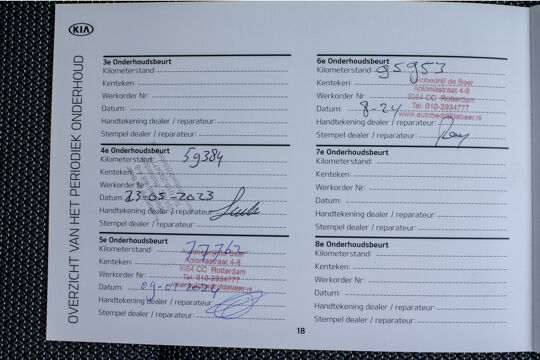 KIA
OVERZICHT VAN HET PERIODIEK ONDERHOUD
3e Onderhoudsbeurt
Kilometerstand:
Kenteken:
Werkorder Nr:
Datum:
Handtekening dealer / reparateur:
Stempel dealer / reparateur:
4e Onderhoudsbeurt
Kilometerstand: 59384
Kenteken:
Werkorder Nr:
Datum: 23-05-2023
Handtekening dealer / reparateur:
Stempel dealer / reparateur:
5e Onderhoudsbeurt
Kilometerstand: 77762
Kenteken:
Werkorder Nr:
Datum: 09-01-2024
Handtekening dealer / reparateur:
Stempel dealer / reparateur:
Autobedrijf de Beer
Aploniastraat 4-8
1084 CC Rotterdam
Tel. 010-2934777
www.autobedrijfdebeer.nl
6e Onderhoudsbeurt
Kilometerstand: 95953
Kenteken:
Werkorder Nr:
Datum: 8-24
Handtekening dealer / reparateur:
Stempel dealer / reparateur:
Autobedrijf de Beer
Aploniastraat 4-8
1084 CC Rotterdam
Tel. 010-2934777
www.autobedrijfdebeer.nl
7e Onderhoudsbeurt
Kilometerstand:
Kenteken:
Werkorder Nr:
Datum:
Handtekening dealer / reparateur:
Stempel dealer / reparateur:
8e Onderhoudsbeurt
Kilometerstand:
Kenteken:
Werkorder Nr:
Datum:
Handtekening dealer / reparateur:
Stempel dealer / reparateur:
18